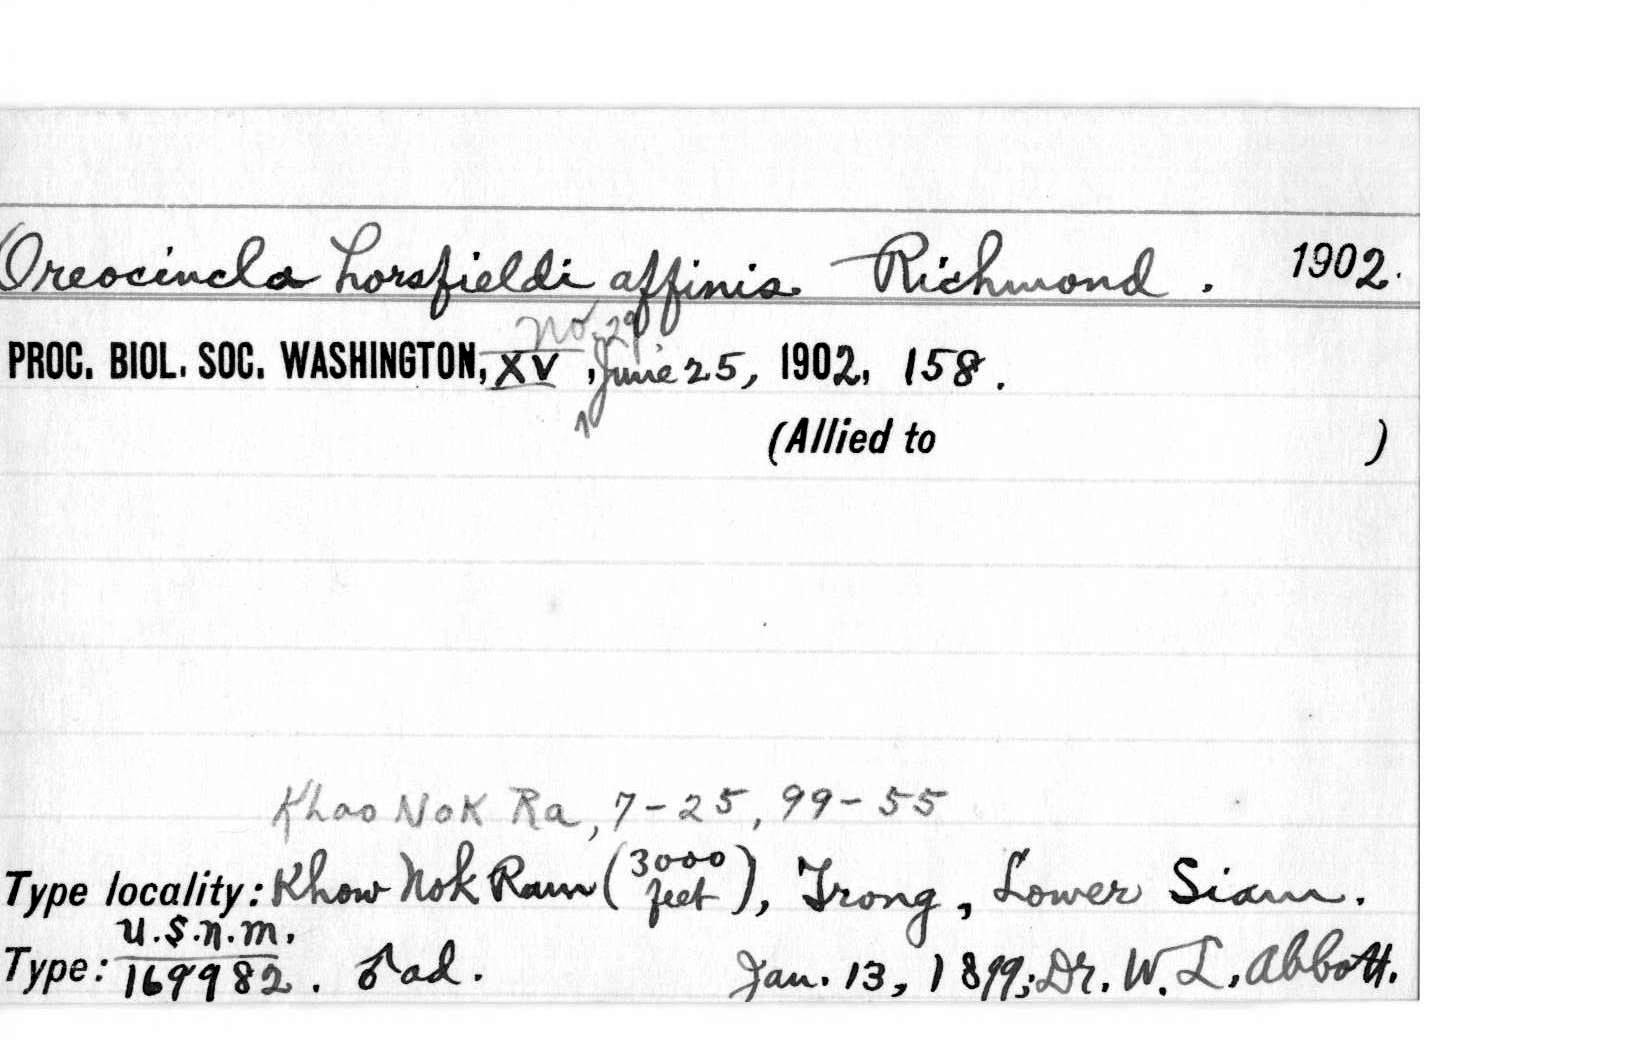 Oreocincla horsfieldi affinis Richmond. 1902.
No. 29
PROC. BIOL. SOC. WASHINGTON, XV, June 25, 1902, 158.
(Allied to )
Khao Nok Ra, 7-25, 99-55
Type locality: Khow Nok Ram (3000 feet), Trong, Lower Siam.
U.S.N.M.
Type: 169982. ♂ ad. Jan. 13, 1899; Dr. W. L. Abbott.